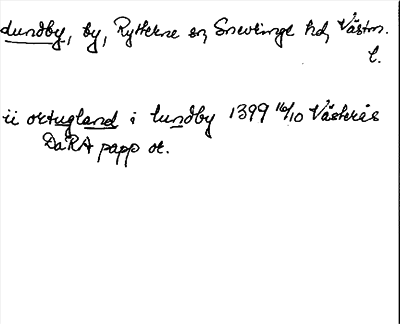 Lundby, by, Rytterne sn, Snevringe hd, Västm.
l.
ii ortugland i lundby 1399 16/10 Västerås
DaRA papp or.